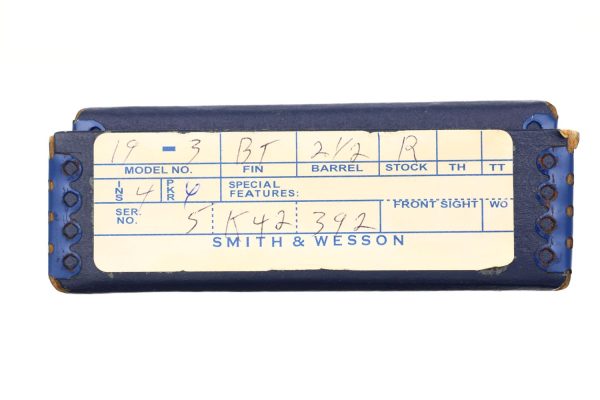 19 - 3 BT 2 1/2 R
MODEL NO. FIN BARREL STOCK TH TT
INS 4 PKR 4 SPECIAL FEATURES:
SER. NO. 5 K42 392 FRONT SIGHT WO
SMITH & WESSON